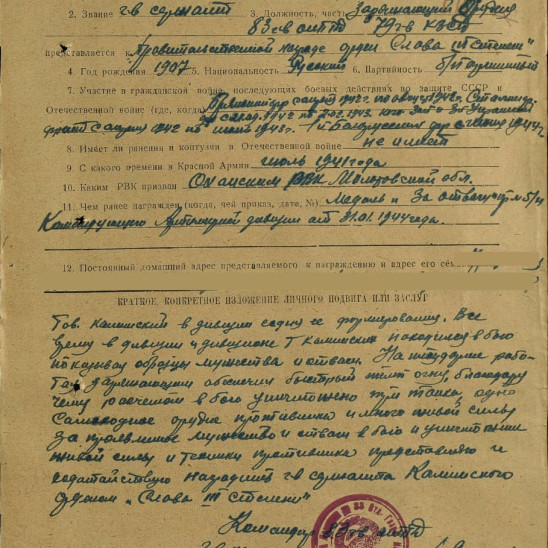 2. Звание гв сержант 3. Должность, часть Заряжающий Орудия
83 гв оиптд 79 гв КЗСД
представляется к Правительственной награде орден "Слава III Степени"
4. Год рождения 1907 5. Национальность Русский 6. Партийность б/партийный
7. Участие в гражданской войне, последующих боевых действиях по защите СССР и
Отечественной войне (где, когда)
фронт с 1942 по июль 1943г. 1944г.
8. Имеет ли ранения и контузии в Отечественной войне не имеет
9. С какого времени в Красной Армии июль 1941 года
10. Каким РВК призван Оханским РВК Молотовской обл.
11. Чем ранее награжден (когда, чей приказ, дата, №) Медаль "За отвагу"
Командующего Артиллерией дивизии от 31.01.1944 года.
12. Постоянный домашний адрес представляемого к награждению и адрес его сем
КРАТКОЕ, КОНКРЕТНОЕ ИЗЛОЖЕНИЕ ЛИЧНОГО ПОДВИГА ИЛИ ЗАСЛУГ
Тов. Калинский в дивизии со дня ее формирования. Все
время в дивизии и дивизионе Т Калинский находился в бою
показывая образцы мужества и отваги. На
заряжающим обеспечил быстрый темп огня, благодаря
чему расчетом в бою уничтожено три танка, одно
Самоходное орудие противника и много живой силы
за проявленное мужество и отвагу в бою и уничтожение
живой силы и техники противника представляю и
ходатайствую наградить гв сержанта Калинского
Орденом "Слава III Степени"
Командир 83 гв оиптд